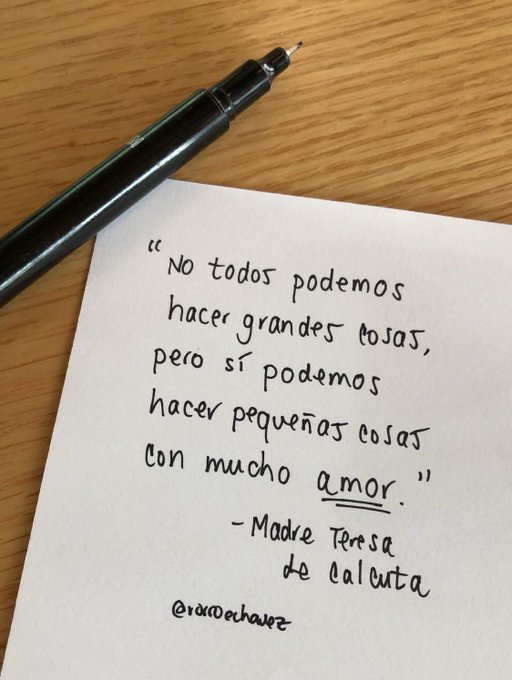 “No todos podemos
hacer grandes cosas,
pero sí podemos
hacer pequeñas cosas
con mucho amor.”
- Madre Teresa
de Calcuta
@rorroechavez